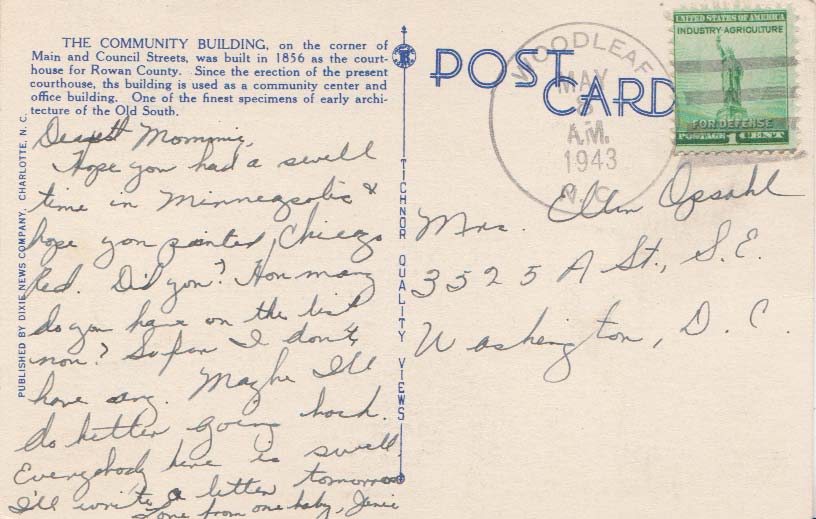 THE COMMUNITY BUILDING, on the corner of
Main and Council Streets, was built in 1856 as the court-
house for Rowan County. Since the erection of the present
courthouse, ths building is used as a community center and
office building. One of the finest specimens of early archi-
tecture of the Old South.
Dearest Mommie,
Hope you had a swell
time in Minneapolis &
hope you painted Chicago
Red. Did you? How many
do you have on the list
now? So far I don't
have any. Maybe I'll
do better going back.
Everybody here is swell.
I'll write a letter tomorrow
Love from one baby, Janie
PUBLISHED BY DIXIE NEWS COMPANY, CHARLOTTE, N. C.
TICHNOR QUALITY VIEWS
POST CARD
WOODLEAF
MAY
8
A.M.
1943
N.C.
UNITED STATES OF AMERICA
INDUSTRY AGRICULTURE
FOR DEFENSE
POSTAGE 1 CENT
Mrs. Ellen Opsahl
3525 A St., S.E.
Washington, D. C.